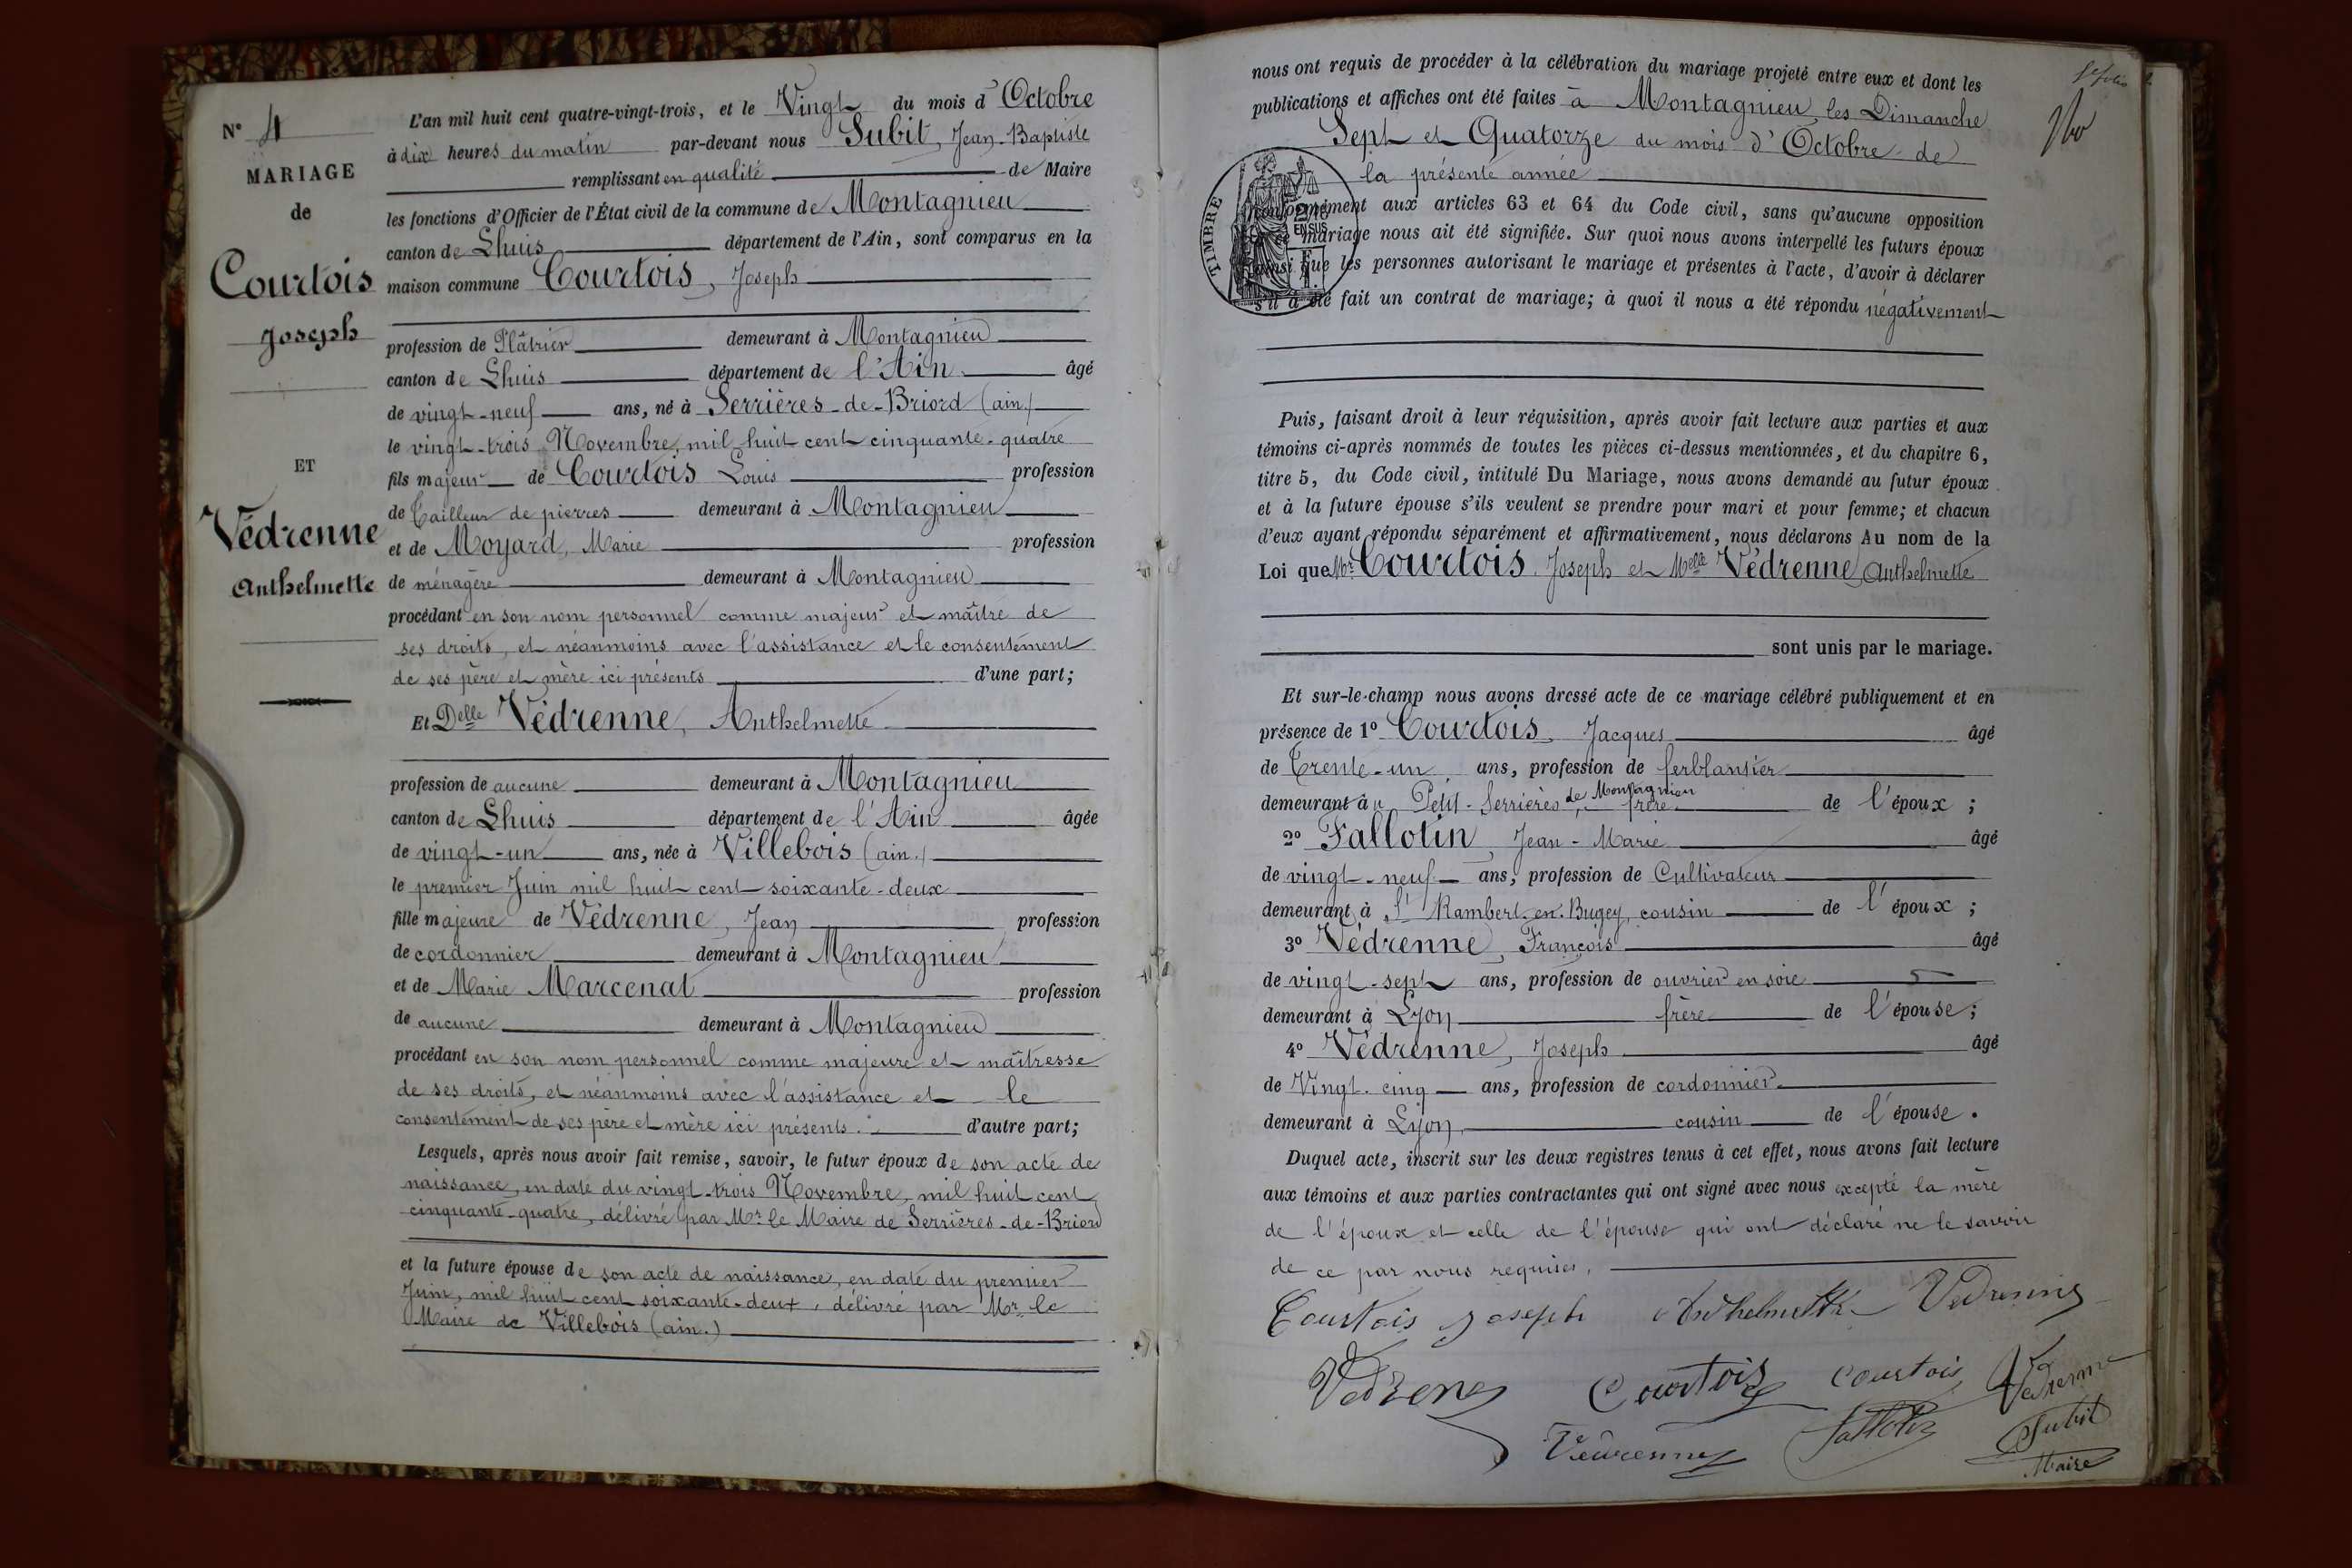 N° 4
MARIAGE
de
Courtois
Joseph
ET
Védrenne
Anthelmette
L'an mil huit cent quatre-vingt-trois, et le Vingt du mois d'Octobre
à dix heures du matin par-devant nous Subit, Jean-Baptiste
remplissant en qualité de Maire
les fonctions d'Officier de l'État civil de la commune de Montagnieu
canton de Lhuis département de l'Ain, sont comparus en la
maison commune Courtois, Joseph
profession de Plâtrier demeurant à Montagnieu
canton de Lhuis département de l'Ain âgé
de vingt-neuf ans, né à Serrières-de-Briord (ain.)
le vingt-trois Novembre, mil huit cent cinquante-quatre
fils majeur de Courtois Louis profession
de Tailleur de pierres demeurant à Montagnieu
et de Moyard, Marie profession
de ménagère demeurant à Montagnieu
procédant en son nom personnel comme majeur et maître de
ses droits, et néanmoins avec l'assistance et le consentement
de ses père et mère ici présents d'une part;
Et Delle Védrenne, Anthelmette
profession de aucune demeurant à Montagnieu
canton de Lhuis département de l'Ain âgée
de vingt-un ans, née à Villebois (ain.)
le premier Juin mil huit cent soixante-deux
fille majeure de Védrenne, Jean profession
de cordonnier demeurant à Montagnieu
et de Marie Marcenat profession
de aucune demeurant à Montagnieu
procédant en son nom personnel comme majeure et maîtresse
de ses droits, et néanmoins avec l'assistance et le
consentement de ses père et mère ici présents. d'autre part;
Lesquels, après nous avoir fait remise, savoir, le futur époux de son acte de
naissance, en date du vingt-trois Novembre, mil huit cent
cinquante-quatre, délivré par Mr le Maire de Serrières-de-Briord
et la future épouse de son acte de naissance, en date du premier
Juin, mil huit cent soixante-deux, délivré par Mr. le
Maire de Villebois (ain.)
nous ont requis de procéder à la célébration du mariage projeté entre eux et dont les
publications et affiches ont été faites à Montagnieu, les Dimanche
Sept et Quatorze du mois d'Octobre de
la présente année
TIMBRE
2/10
EN SUS
conformément aux articles 63 et 64 du Code civil, sans qu'aucune opposition
à ce mariage nous ait été signifiée. Sur quoi nous avons interpellé les futurs époux
ainsi que les personnes autorisant le mariage et présentes à l'acte, d'avoir à déclarer
s'il a été fait un contrat de mariage; à quoi il nous a été répondu négativement
Puis, faisant droit à leur réquisition, après avoir fait lecture aux parties et aux
témoins ci-après nommés de toutes les pièces ci-dessus mentionnées, et du chapitre 6,
titre 5, du Code civil, intitulé Du Mariage, nous avons demandé au futur époux
et à la future épouse s'ils veulent se prendre pour mari et pour femme; et chacun
d'eux ayant répondu séparément et affirmativement, nous déclarons Au nom de la
Loi que Mr Courtois Joseph et Melle Védrenne, Anthelmette
sont unis par le mariage.
Et sur-le-champ nous avons dressé acte de ce mariage célébré publiquement et en
présence de 1° Courtois, Jacques âgé
de Trente-un ans, profession de ferblantier
de Montagnieu
demeurant à u Petit-Serrières, frère de l'époux;
2° Fallotin, Jean-Marie âgé
de vingt-neuf ans, profession de Cultivateur
demeurant à St Rambert-en-Bugey, cousin de l'époux;
3° Védrenne, François âgé
de vingt-sept ans, profession de ouvrier en soie
demeurant à Lyon frère de l'épouse;
4° Védrenne, Joseph âgé
de Vingt-cinq ans, profession de cordonnier
demeurant à Lyon, cousin de l'épouse.
Duquel acte, inscrit sur les deux registres tenus à cet effet, nous avons fait lecture
aux témoins et aux parties contractantes qui ont signé avec nous excepté la mère
de l'époux et celle de l'épouse qui ont déclaré ne le savoir
de ce par nous requises.
Courtois Joseph Anthelmette Vedrenne
Vedrene Courtois Courtois Vedrenne
Vedrenne Fallotin Subit
Maire